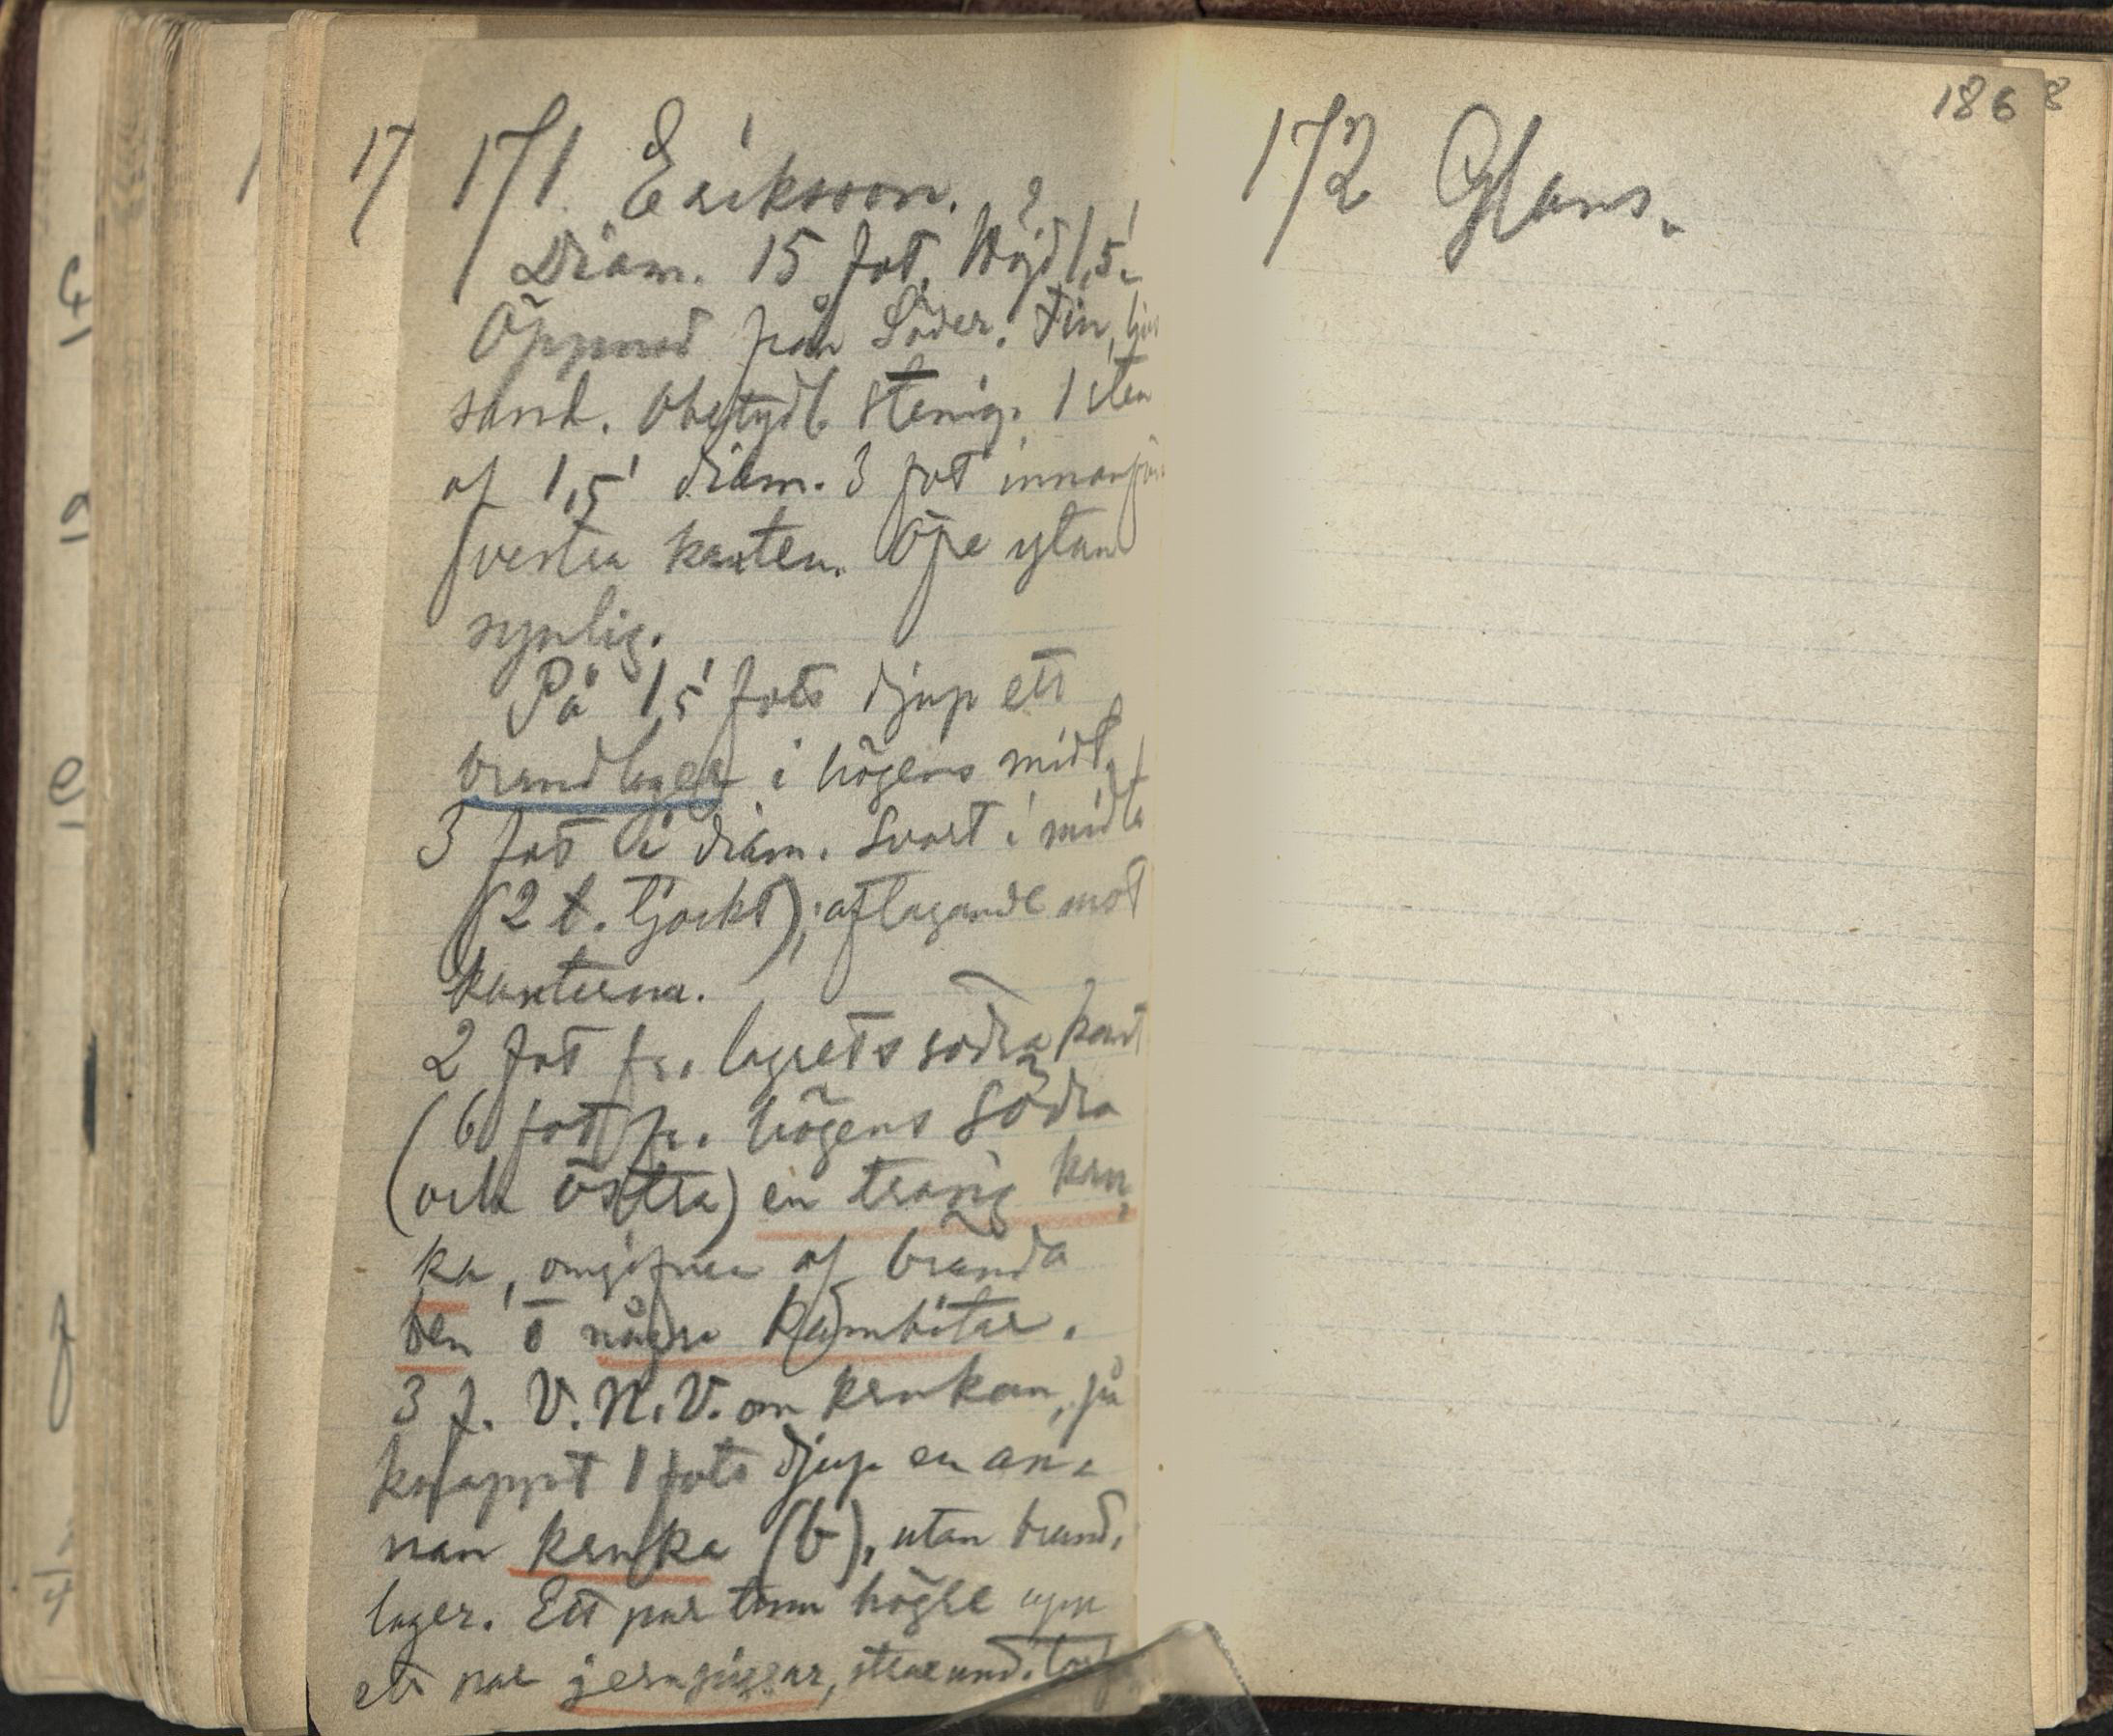 171 Eriksson.
Diam. 15 fot. Höjd 1,5.
Öppnad från Söder. Fin,
sand. Obetydl. stenig. 1 sten
af 1,5' diam. 3 fot innanför
vestra kanten. Öfre ytan
synlig.
På 1,5' fots djup ett
brandlager i högens midt.
3 fot i diam. Svart i midten
(2 t. tjockt); aftagande mot
kanterna.
2 fot fr. lagrets södra kant
(6 fot fr. högens södra
(och östra) en trasig kru-
ka, omgifven af brända
ben o några kambitar.
3 f. V.N.V. om krukan, på
knappt 1 fots djup en an-
nan kruka (b), utan brand-
lager. Ett par tum högre upp
ett par jernpiggar, strax und. torf
17
186
8
172 Glans.